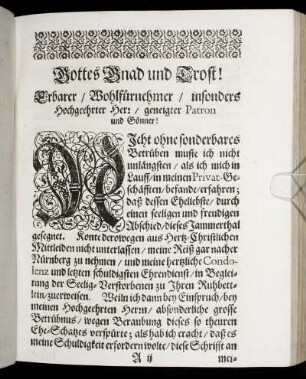 Gottes Gnad und Trost!
Erbarer / Wohlfürnehmer / insonders
Hochgeehrter Herr / geneigter Patron
und Gönner!
Nicht ohne sonderbares
Betrüben muste ich nicht
unlängsten / als ich mich in
Lauff / in meinen Privat-Ge-
schäfften / befande / erfahren;
daß dessen Eheliebste / durch
einen seeligen und freudigen
Abschied / dieses Jammerthal
gesegnet. Konte derowegen aus Hertz-Christlichen
Mitleiden nicht unterlassen / meine Reiß gar nacher
Nürnberg zu nehmen / und meine hertzliche Condo-
lenz und letzten schuldigsten Ehrendienst / in Beglei-
tung der Seelig-Verstorbenen zu Ihren Ruhbett-
lein / zuerweisen. Weiln ich dann bey Einspruch / bey
meinen Hochgeehrten Herrn / absonderliche grosse
Betrübnus / wegen Beraubung dieses so theuren
Ehe-Schatzes verspürte; als hab ich eracht / daß es
meine Schuldigkeit erfordern wolte / diese Schrifft an
A ij mei-